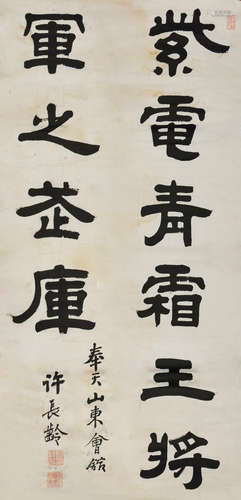 紫電青霜王將
軍之茲庫
奉天山東會館
许長齡